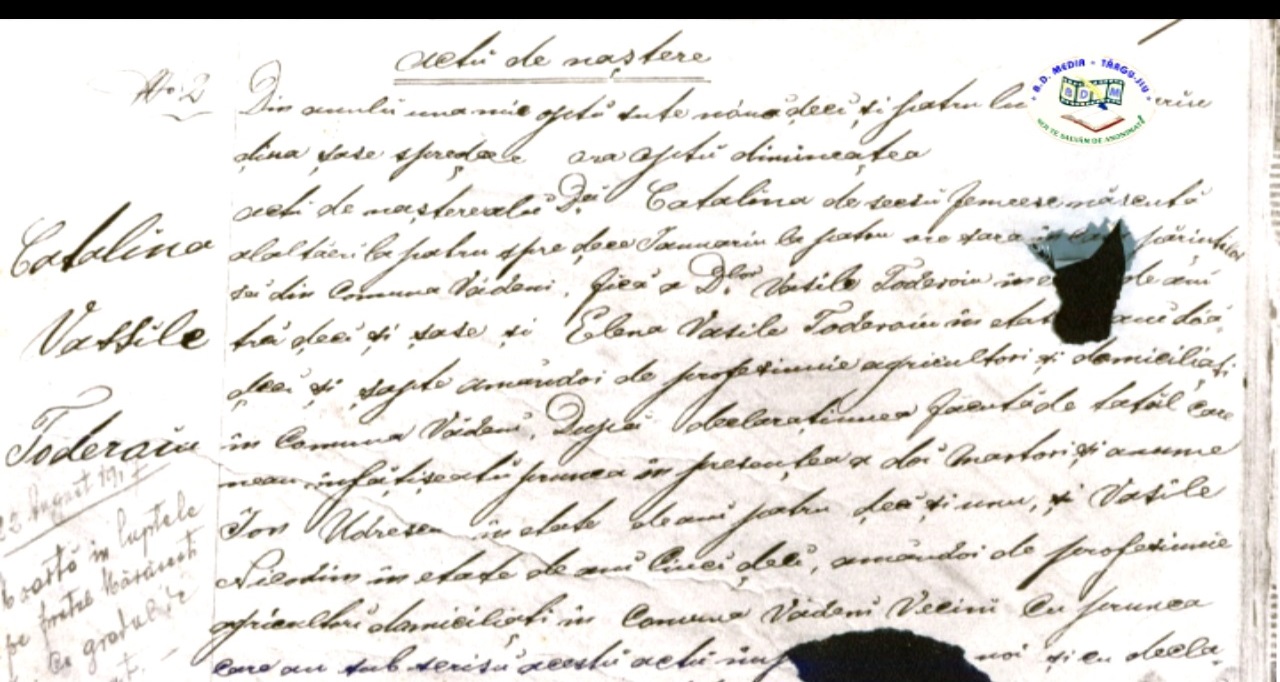 actŭ de naștere
No. 2
Din anulŭ una mie optŭ sute nóuă ḑeci și patru
ḑiua șase spreḑece ora optŭ dimineața
actŭ de naștere alŭ Catalina de secsŭ femeesc născută
alaltăeri la patru spre ḑece Januariu la patru ore sara părinților
sĕi din Comuna Vădeni, fiică a D.lor Vasile Toderoiu în de ani
trei ḑeci și șase și Elena Vasile Toderoiu în etate ani doă
ḑeci și șapte amândoi de profesiunie agricultori și domiciliați
în Comuna Vădeni, După declarațiunea făcută de tatăl care
neau înfățișeatŭ prunca în presența a doi martori și anume
Ion Udrescu în etate de ani patru ḑeci și unu, și Vasile
Nicodim în etate de ani Cinci ḑeci, amândoi de profesiunie
agricultori domiciliați în Comuna Vădeni Vecini cu prunca
care au sub scrisŭ acestŭ actŭ noi și cu decla
Catalina
Vassile
Toderoiu
22 August 1917
moartă în luptele
pe frontul Mărășești
cu gradul de
B.D. MEDIA - TÂRGU-JIU
B D M
NOI TE SALVĂM DE ANONIMAT!